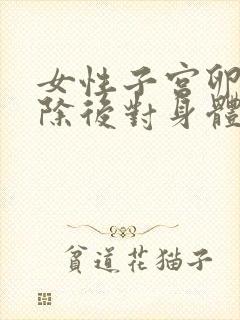 女性子宮卵
除後對身體
貧道花猫子